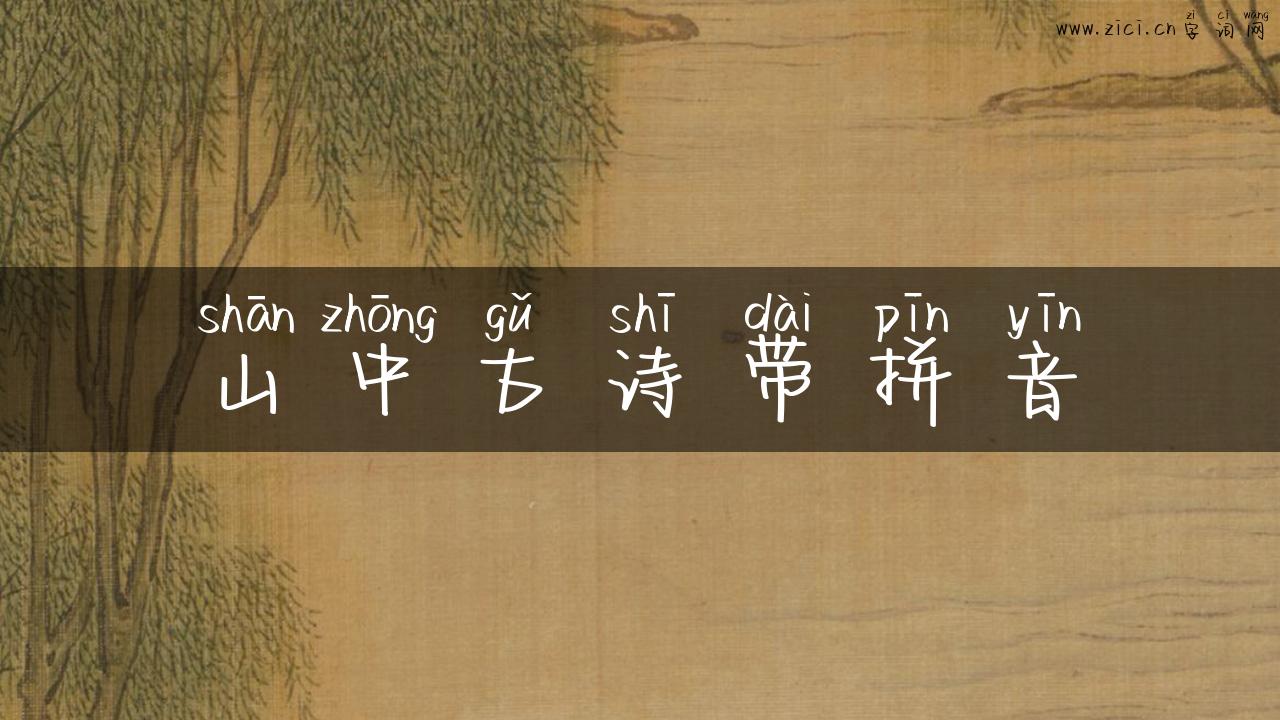 zì cí wǎng
www.zici.cn 字词网
shān zhōng gǔ shī dài pīn yīn
山中古诗带拼音